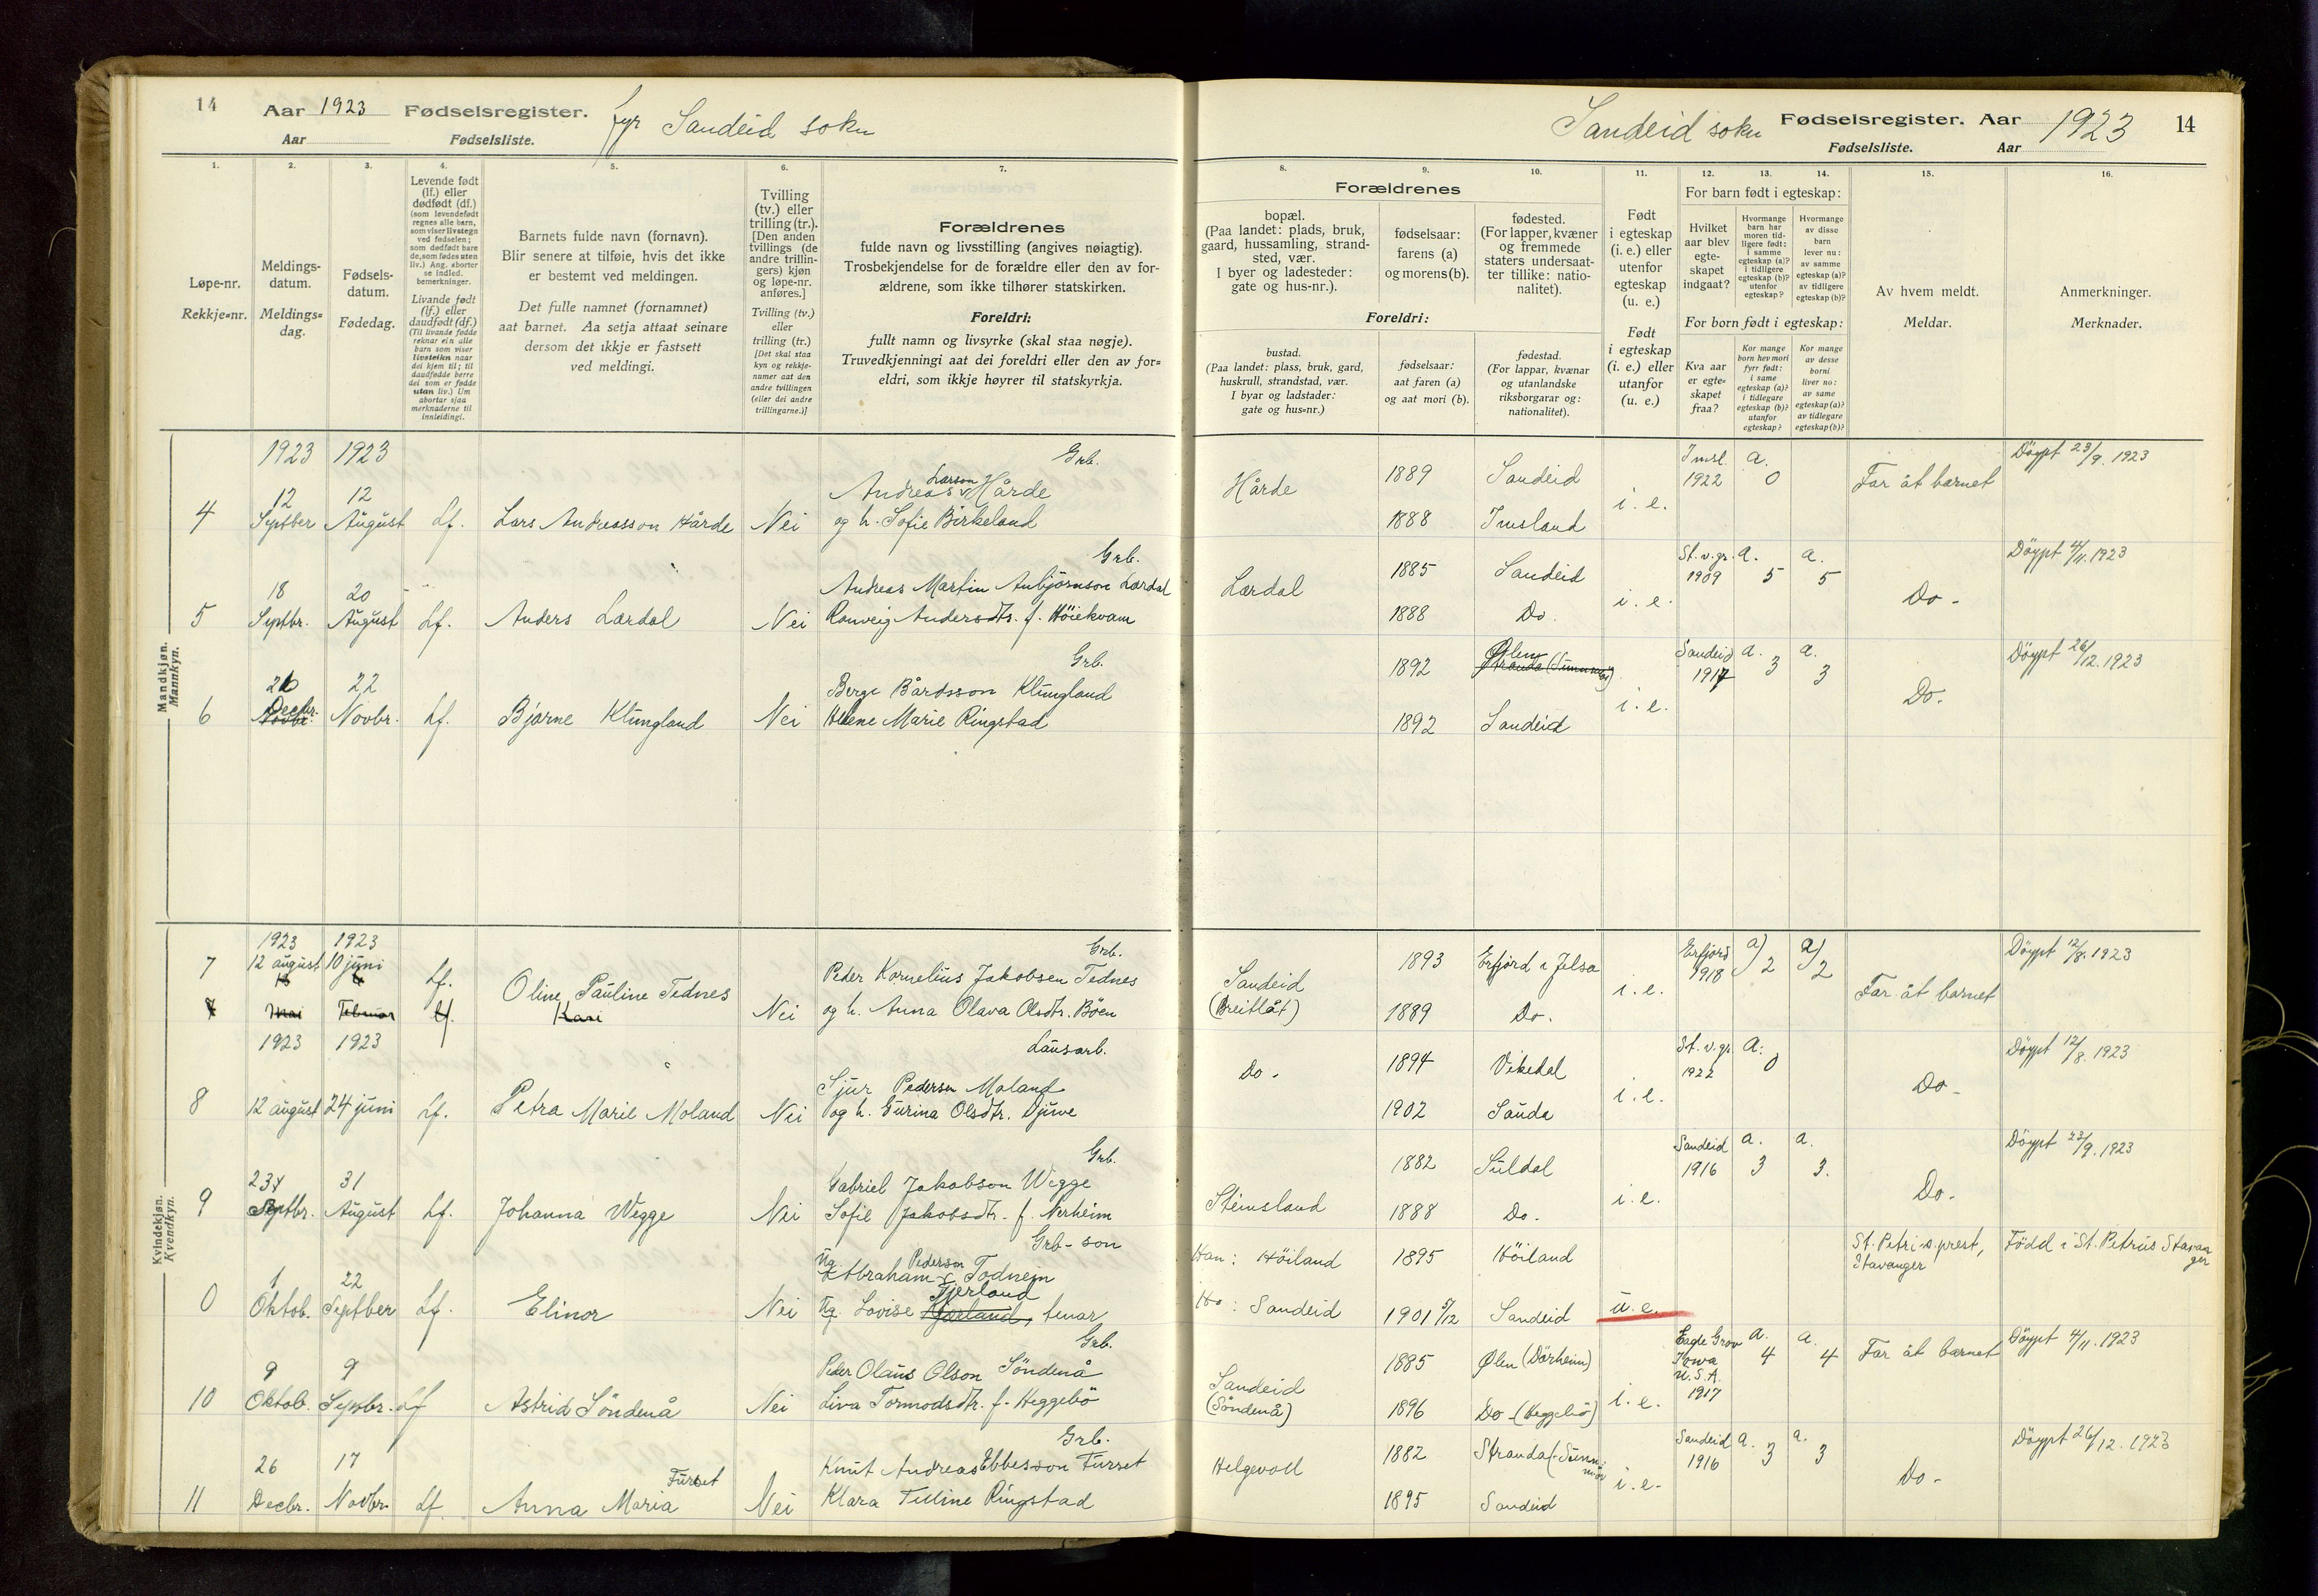 14 Aar 1923 Fødselsregister. fyr Sandeid sokn
Aar Fødselsliste.
Sandeid sokn Fødselsregister. Aar 1923 14
Fødselsliste. Aar
1.
Løpe-nr.
Rekkje=nr.
2.
Meldings-
datum.
Meldings=
dag.
3.
Fødsels-
datum.
Fødedag.
4.
Levende født
(lf.) eller
dødfødt (df.)
(som levendefødt
regnes alle barn,
som viser livstegn
ved fødselen;
som dødfødt bare
de, som fødes uten
liv.) Ang. aborter
se indled.
bemerkninger.
Livande født
(lf.) eller
daudfødt (df.)
(Til livande fødde
reknar ein alle
barn som viser
livsteikn naar
dei kjem til; til
daudfødde berre
dei som er fødde
utan liv.) Um
abortar sjaa
merknaderne til
innleidingi.
5.
Barnets fulde navn (fornavn).
Blir senere at tilføie, hvis det ikke
er bestemt ved meldingen.
Det fulle namnet (fornamnet)
aat barnet. Aa setja attaat seinare
dersom det ikkje er fastsett
ved meldingi.
6.
Tvilling
(tv.) eller
trilling (tr.).
[Den anden
tvillings (de
andre trillin-
gers) kjøn
og løpe-nr.
anføres.]
Tvilling (tv.)
eller
trilling (tr.)
[Det skal staa
kyn og rekkje-
numer aat den
andre tvillingen
(eller dei andre
trillingarne.)]
7.
Forældrenes
fulde navn og livsstilling (angives nøiagtig).
Trosbekjendelse for de forældre eller den av for-
ældrene, som ikke tilhører statskirken.
Foreldri:
fullt namn og livsyrke (skal staa nøgje).
Truvedkjenningi aat dei foreldri eller den av for=
eldri, som ikkje høyrer til statskyrkja.
Forældrenes
8.
bopæl.
(Paa landet: plads, bruk,
gaard, hussamling, strand-
sted, vær.
I byer og ladesteder:
gate og hus-nr.).
9.
fødselsaar:
farens (a)
og morens (b).
10.
fødested.
(For lapper, kvæner
og fremmede
staters undersaat-
ter tillike: natio-
nalitet).
Foreldri:
bustad.
(Paa landet: plass, bruk, gard,
huskrull, strandstad, vær.
I byar og ladstader:
gate og hus=nr.)
fødselsaar:
aat faren (a)
og aat mori (b).
fødestad.
(For lappar, kvænar
og utanlandske
riksborgarar og:
nationalitet).
11.
Født
i egteskap
(i. e.) eller
utenfor
egteskap
(u. e.)
Født
i egteskap
(i. e.) eller
utanfor
(u. e.)
12. 13. 14.
For barn født i egteskap:
Hvilket
aar blev
egte-
skapet
indgaat?
Hvormange
barn har
moren tid-
ligere født:
i samme
egteskap (a)?
i tidligere
egteskap (b)?
utenfor
egteskap?
Hvormange
av disse
barn
lever nu:
av samme
egteskap (a)?
av tidligere
egteskap (b)?
For born født i egteskap:
Kva aar
er egte=
skapet
fraa?
Kor mange
born hev mori
fyrr født:
i same
egteskap (a)?
i tidlegare
egteskap (b)?
utanfor
egteskap?
Kor mange
av desse
borni
liver no:
av same
egteskap (a)?
av tidlegare
egteskap (b)?
15.
Av hvem meldt.
Meldar.
16.
Anmerkninger.
Merknader.
Mandkjøn.
Mannkyn.
1923 1923 Grb.
4 12 Septber 12 August Lf. Lars Andreasson Hårde Nei Andreas Larson Hårde
og h. Sofie Birkeland
Hårde 1889 Sandeid i. e. Imsl. 1922 a. 0 Far åt barnet Döypt 23/9. 1923
1888 Imsland
Grb.
5 18 Septbr. 20 August Lf. Anders Lardal Nei Andreas Martin Anbjørnson Lardal
Ranveig Andersdtr. f. Höiekvam
Lardal 1885 Sandeid i. e. St. v. gr. 1909 a. 5 a. 5 Do- Döypt 4/11. 1923
1888 Do.
Grb.
6 26 Decbr. 22 Novbr. Lf. Bjarne Klungland Nei Berge Bårdsson Klungland
Helene Marie Ringstad
1892 Ølen i. e. Sandeid 1917 a. 3 a. 3 Do. Döypt 26/12. 1923
1892 Sandeid
Kvindekjøn.
Kvendkyn.
1923 1923 Grb.
7 12 august 10 juni Lf. Oline Pauline Tednes Nei Peder Kornelius Jakobsen Tednes
7 Mai Februar Lf. Kari og h. Anna Olava Olsdtr. Böen
Sandeid (Breitlåt) 1893 Erfjord i Jelsa i. e. Erfjord 1918 a) 2 a) 2 Far åt barnet Döypt 12/8. 1923
1889 Do.
1923 1923 Lausarb.
8 12 august 24 juni Lf. Petra Marie Moland Nei Sjur Pedersen Moland
og h. Gurina Olsdtr. Djuve
Do- 1894 Vikedal i. e. St. v. gr. 1922 a. 0 Do- Döypt 12/8. 1923
1902 Sauda
Grb.
9 23 Septbr. 31 August Lf. Johanna Vegge Nei Gabriel Jakobson Vegge
Sofie Jakobsdtr. f. Nerheim
Steinsland 1882 Suldal i. e. Sandeid 1916 a. 3 a. 3. Do. Döypt 23/9. 1923
1888 Do.
Grb-son
0 1 Oktob. 22 Septber Lf. Elinor Nei Ug. Abraham Pederson Todneim
Ug. Lovise Fjerland, tenar
Han: Höiland 1895 Höiland St. Petri s. prest, Stavanger Född i St. Petrus Stavanger
Ho: Sandeid 1901 5/12 Sandeid u. e.
Grb.
10 9 Oktob. 9 Septbr. Lf Astrid Söndenå Nei Peder Olaus Olson Söndenå
Liva Tormodsdtr. f. Heggebö
Sandeid (Söndenå) 1885 Ølen (Dörheim) i. e. Eagle Grove Iowa U.S.A. 1917 a. 4 a. 4 Far åt barnet Döypt 4/11. 1923
1896 Do-(Heggebö)
Grb.
11 26 Decbr. 17 Novbr. Lf. Anna Maria Furset Nei Knut Andreas Ebbesson Furset
Klara Tilline Ringstad
Helgevoll 1882 Stranda (Sunnmör i. e. Sandeid 1916 a. 3 a. 3 Do- Döypt 26/12. 1923
1895 Sandeid